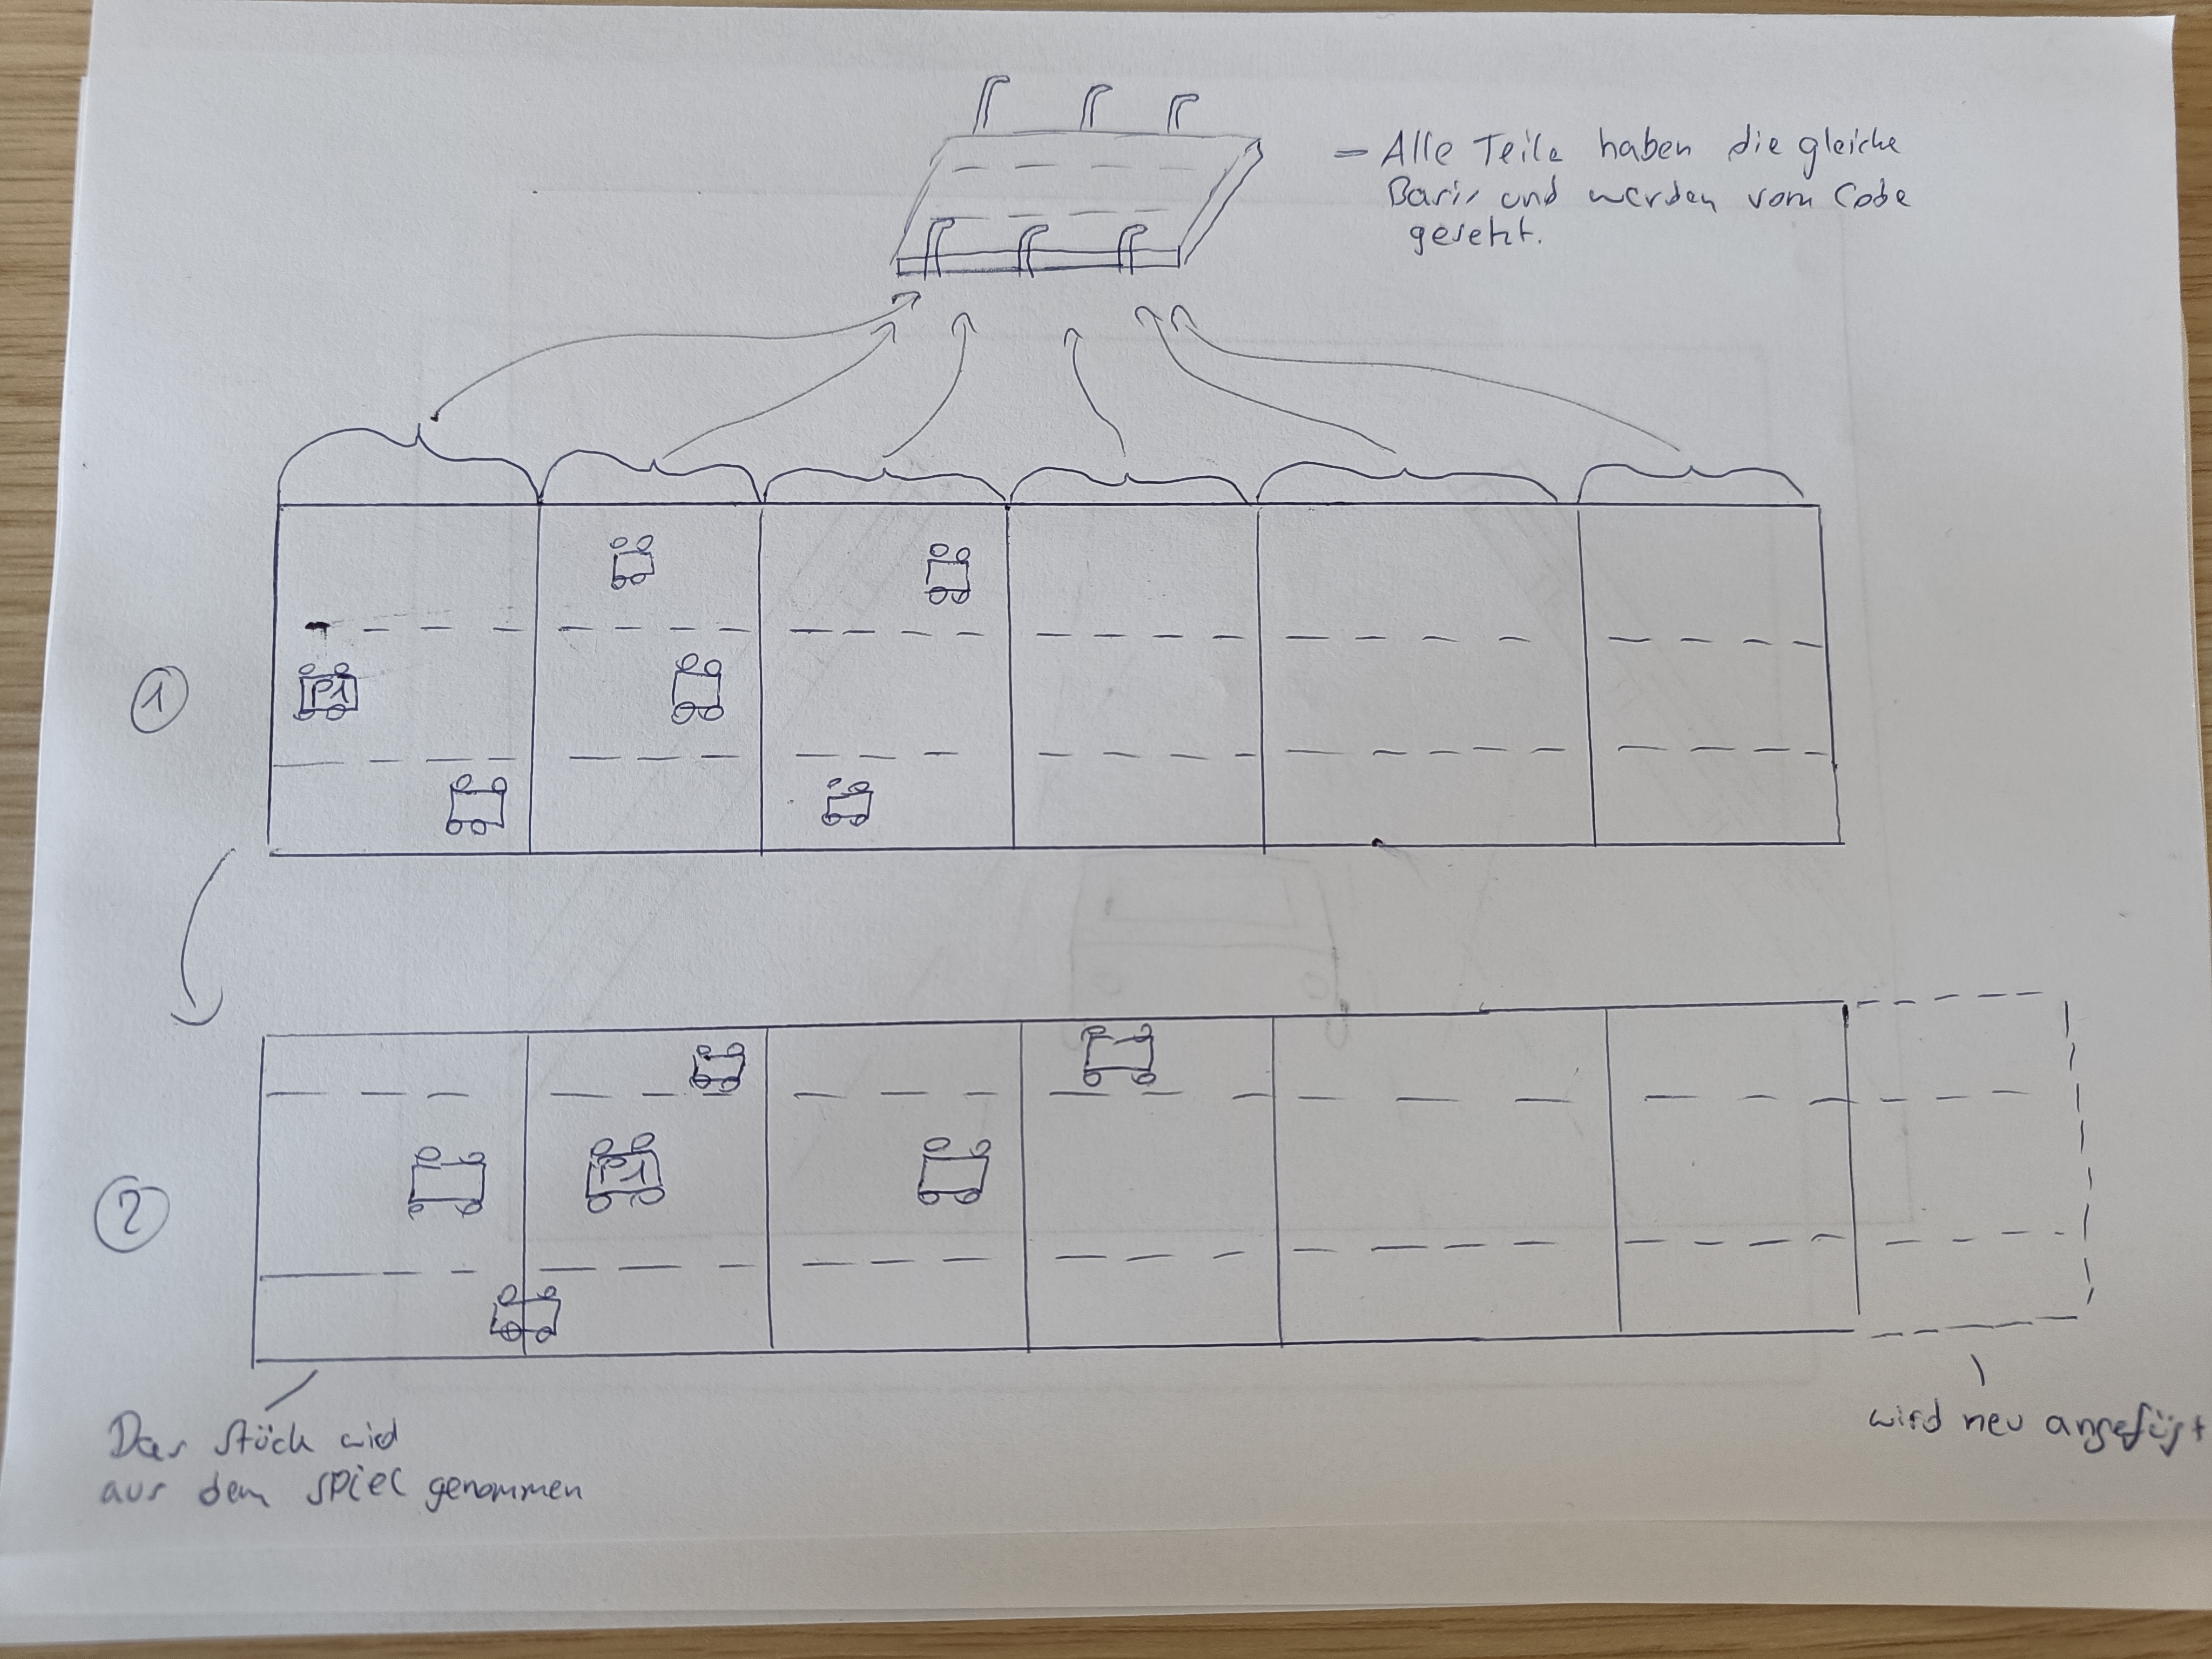 – Alle Teile haben die gleiche
Basis und werden vom Code
gesetzt.
1
P1
2
P1
Das Stück wid
aus dem Spiel genommen
wird neu angefügt